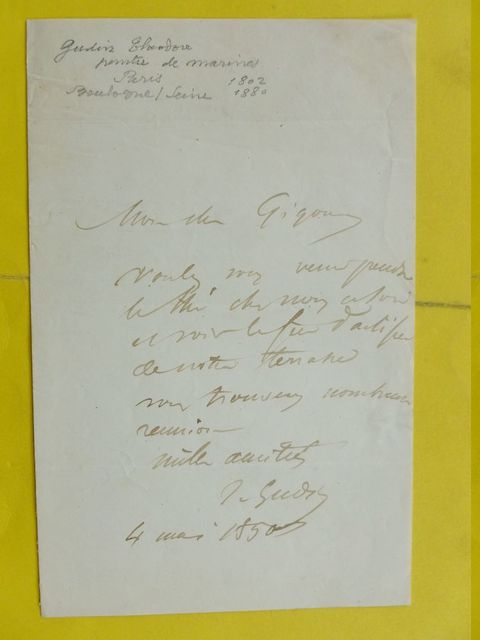 Gudin Theodore
peintre de marines
Paris 1802
Boulogne s/Seine 1880
Mon cher Gigoux
Voulez vous venir prendre
le thé chez nous ce soir
et voir le feu d'artifice
de notre terrasse
vous trouverez nombreuse
reunion
mille amitiés
T. Gudin
4 mai 1850